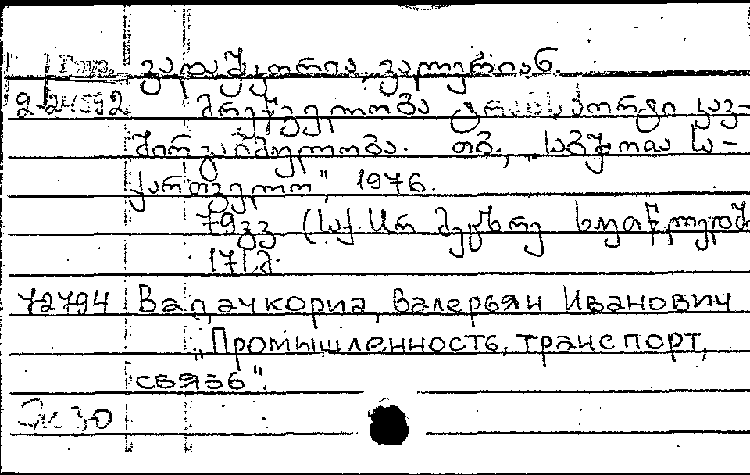 ვადაჭკორია, ვალერიან
2-24592 მრეწველობა ტრანსპორტი კავ-
შირგაბმულობა. თბ., „საბჭოთა სა-
ქართველო", 1976.
79გვ (საქ.
17)
72794 Вадачкориа, Валерьян Иванович
„Промышленность, транспорт,
связь".